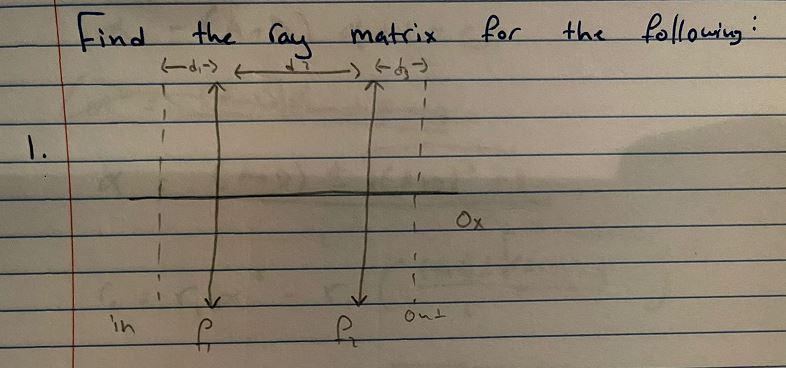 Find the ray matrix for the following:
d₁ d₂ d₃
1.
Ox
in f₁ f₂ out